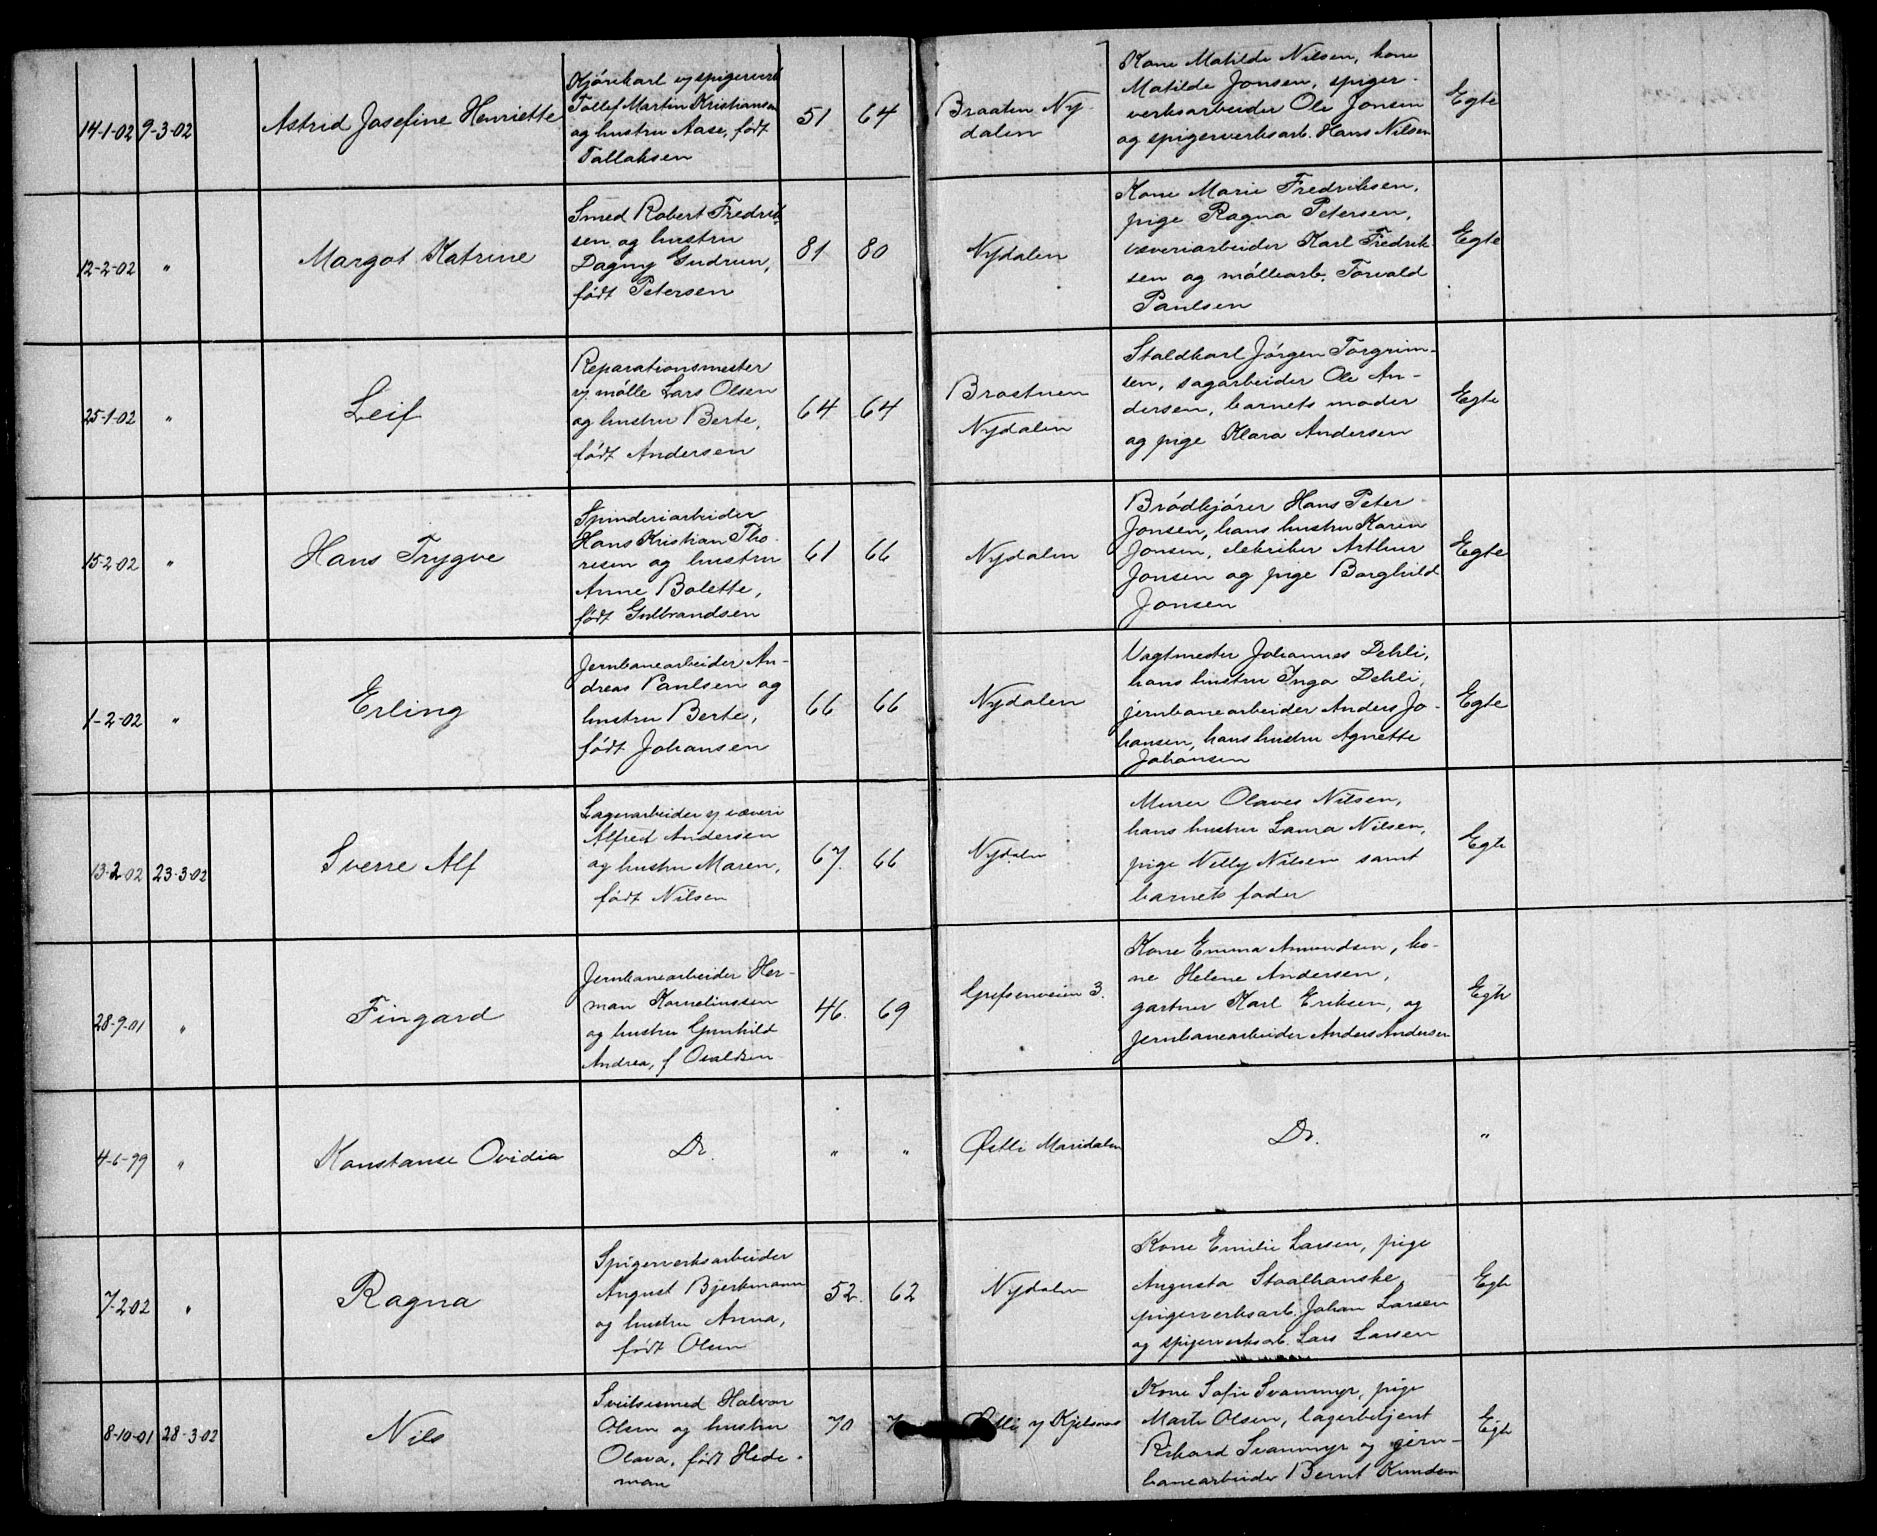 14-1-02 9-3-02
Astrid Josefine Henriette
Kjörekarl v/ spigerverk
Tollef Martin Kristiansen
og hustru Aase, født
Tallaksen
51 64
Braaten Ny-
dalen
Kone Matilde Nilsen, kone
Matilde Jonsen, spiger-
verksarbeider Ole Jonsen
og spigerverksarb. Hans Nilsen
Egte
12-2-02 "
Margot Katrine
Smed Robert Fredrik-
sen og hustru
Dagny Gudrun,
født Petersen
81 80
Nydalen
Kone Marie Fredriksen,
pige Ragna Petersen,
væveriarbeider Karl Fredrik-
sen og møllearb. Torvald
Paulsen
Egte
25-1-02 "
Leif
Reparationsmester
v/ mølle Lars Olsen
og hustru Berte,
født Andersen
64 64
Nydalen
Staldkarl Jörgen Torgrim-
sen, sagarbeider Ole An-
dersen, barnets moder
og pige Klara Andersen
Egte
15-2-02 "
Hans Trygve
Spinderiarbeider
Hans Kristian Tho-
resen og hustru
Anne Bolette,
født Gulbrandsen
61 66
Nydalen
Brödkjörer Hans Peter
Jonsen, hans hustru Karen
Jonsen, elektriker Arthur
Jonsen og pige Borghild
Jonsen
Egte
1-2-02 "
Erling
Jernbanearbeider An-
dreas Paulsen og
hustru Berte,
født Johansen
66 66
Nydalen
Vagtmester Johannes Dehli,
hans hustru Inga Dehli,
jernbanearbeider Anders Jo-
hansen, hans hustru Agnette
Johansen
Egte
13-2-02 23-3-02
Sverre Alf
Lagerarbeider v/ væveri
Alfred Andersen
og hustru Maren,
født Nilsen
67. 66
Nydalen
Murer Olaves Nilsen,
hans hustru Laura Nilsen,
pige Nelly Nilsen samt
barnets fader
Egte
28-9-01 "
Fingard
Jernbanearbeider Her-
man Korneliussen
og hustru Gunhild
Andrea, f. Osvaldsen
46. 69
Grefsenveien 3.
Kone Emma Amundsen, ko-
ne Helene Andersen,
gartner Karl Eriksen, og
jernbanearbeider Anders Andersen
Egte
4-6-99 "
Konstanse Ovidia
Do.
" "
Østli Maridalen
Do.
"
7-2-02 "
Ragna
Spigerverksarbeider
August Bjerkmann
og hustru Anna,
født Olsen
52. 62
Nydalen
Kone Emilie Larsen, pige
Augusta Staalhanske,
spigerverksarb. Johan Larsen
og spigerverksarb. Lars Larsen
Egte
8-10-01 28-3-02
Nils
Sveitsesmed Halvor
Olsen og hustru
Olava, født Hede-
man
70 7
Østli v/ Kjelsaas
Kone Sofie Svanmyr, pige
Marte Olsen, lagerbetjent
Rikard Svanmyr og jern-
banearbeider Bernt Knudsen
Egte